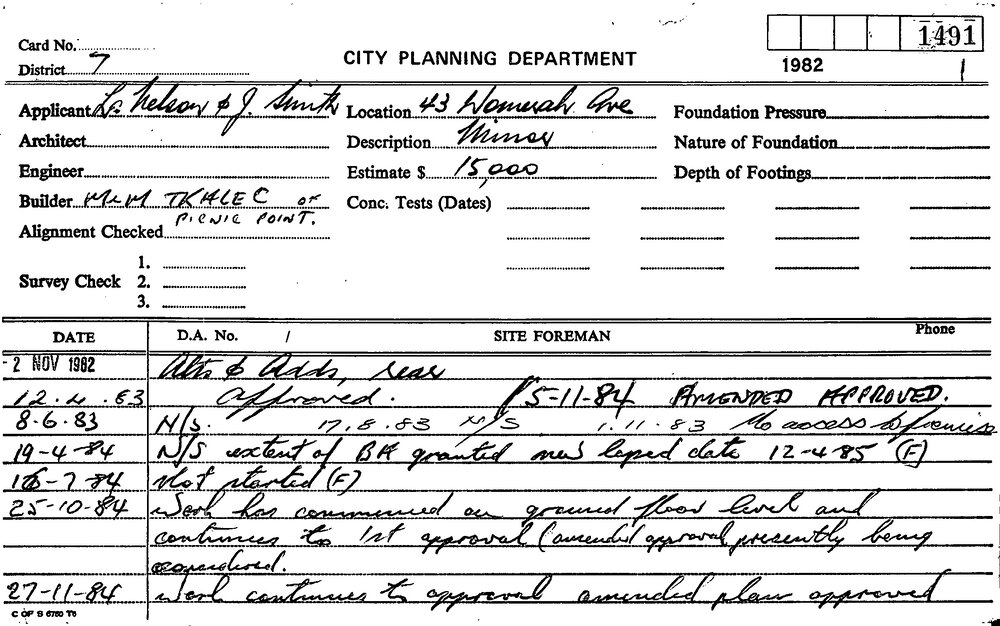 1491
Card No.
District 7
CITY PLANNING DEPARTMENT
1982 1
Applicant L. Nelson & J. Smith Location 43 Womerah Ave Foundation Pressure
Architect Description Minor Nature of Foundation
Engineer Estimate $ 15,000 Depth of Footings
Builder M & M TKALEC OF Conc. Tests (Dates)
PICNIC POINT.
Alignment Checked
1.
Survey Check 2.
3.
DATE D.A. No. / SITE FOREMAN Phone
- 2 NOV 1982 Alts & Adds, rear
12.4.83 Approved. 15-11-84 AMENDED APPROVED.
8.6.83 N/S. 17.8.83 N/S 1.11.83 No access to premises
19-4-84 N/S extent of BA granted new lapsed date 12-4-85 (F)
16-7-84 Not started (F)
25-10-84 Work has commenced on ground floor level and
continues to 1st approval (amended approval presently being
considered.
27-11-84 Work continues to approval amended plan approved
C OF S 6780 T6